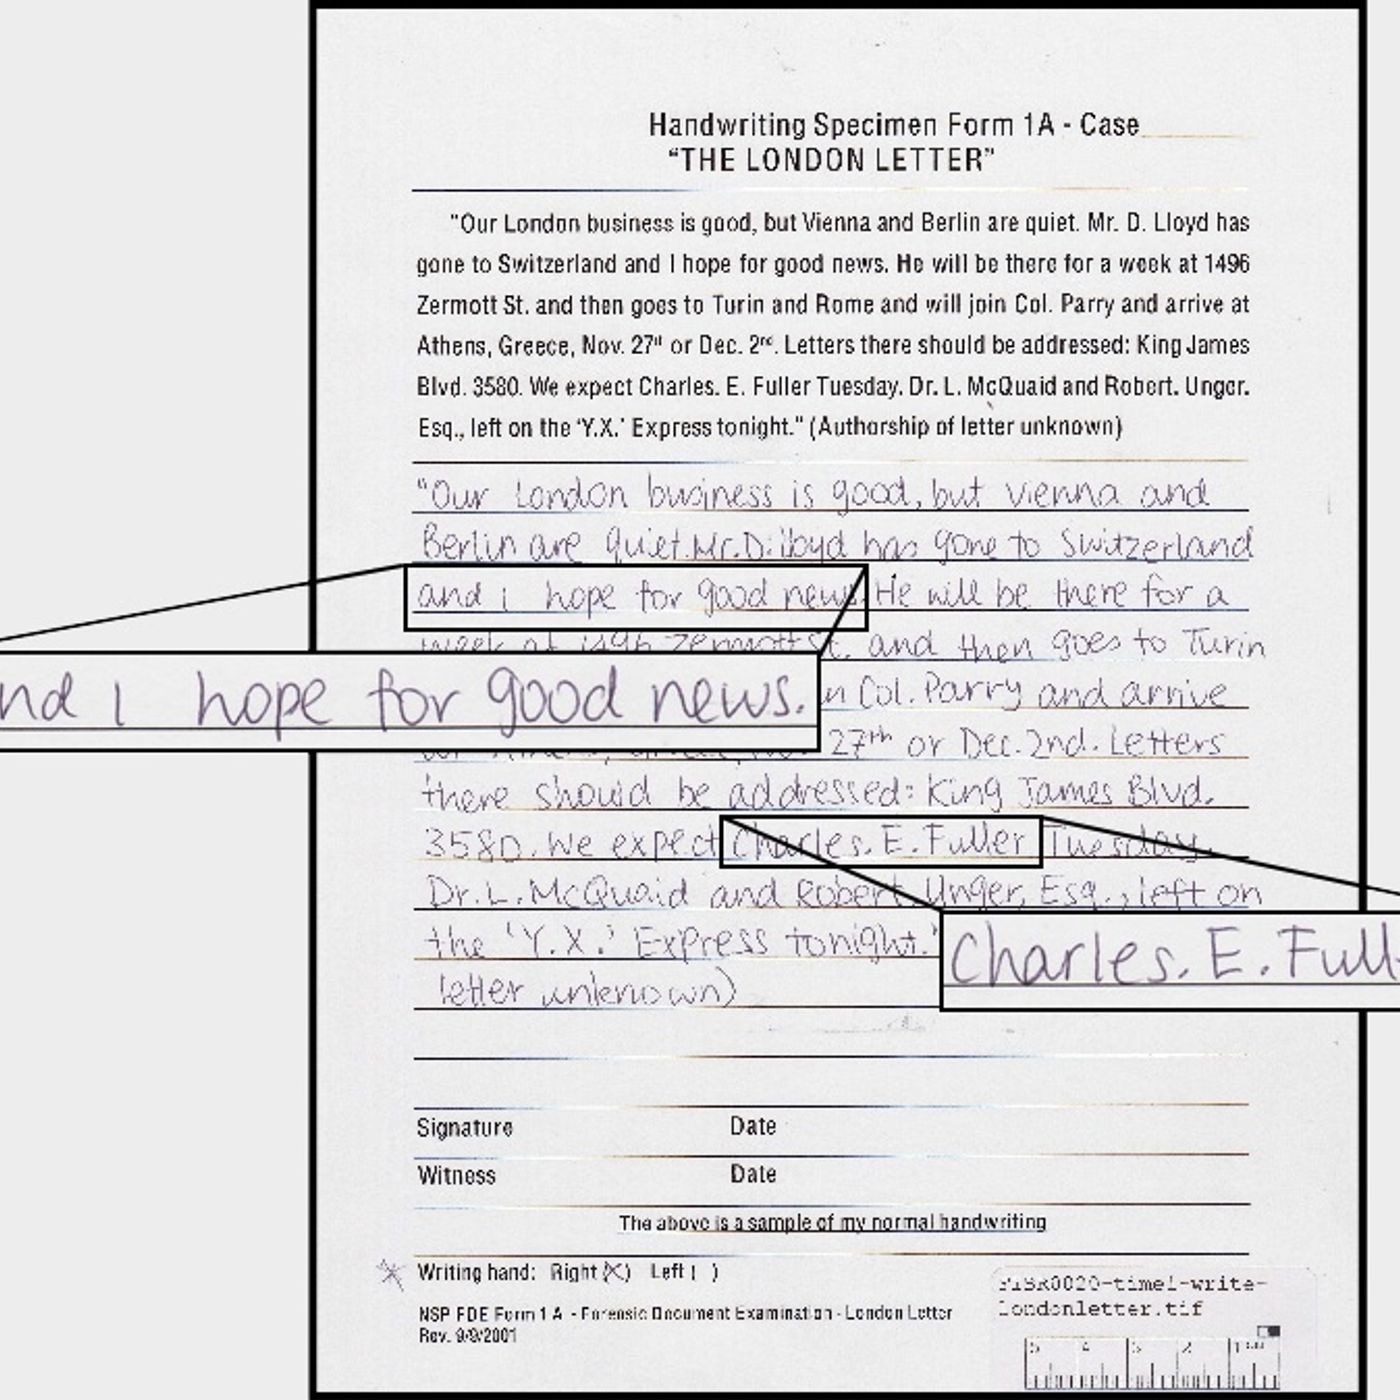 Handwriting Specimen Form 1A - Case
“THE LONDON LETTER”
"Our London business is good, but Vienna and Berlin are quiet. Mr. D. Lloyd has
gone to Switzerland and I hope for good news. He will be there for a week at 1496
Zermott St. and then goes to Turin and Rome and will join Col. Parry and arrive at
Athens, Greece, Nov. 27th or Dec. 2nd. Letters there should be addressed: King James
Blvd. 3580. We expect Charles. E. Fuller Tuesday. Dr. L. McQuaid and Robert. Unger.
Esq., left on the ‘Y.X.’ Express tonight." (Authorship of letter unknown)
"Our London business is good, but Vienna and
Berlin are quiet. Mr. D. lloyd has gone to Switzerland
and i hope for good news. He will be there for a
week at 1496 Zermott St. and then goes to Turin
nd i hope for good news.
Col. Parry and arrive
27th or Dec. 2nd. Letters
there should be addressed: King James Blvd.
3580. We expect Charles. E. Fuller Tuesday.
Dr. L. McQuaid and Robert. Unger, Esq., left on
the 'Y.X.' Express tonight."
Charles. E. Full
letter unknown)
Signature Date
Witness Date
The above is a sample of my normal handwriting
Writing hand: Right (X) Left ( )
NSP FDE Form 1 A - Forensic Document Examination - London Letter
Rev. 9/9/2001
londonletter.tif